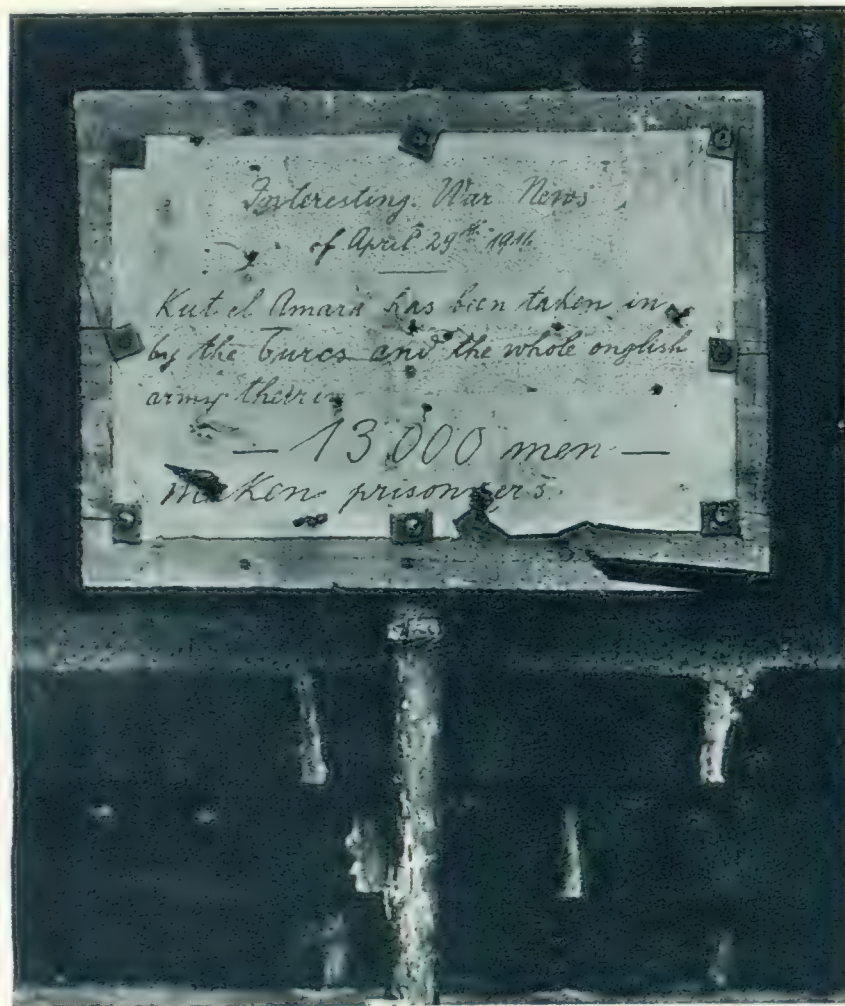 Interesting War News
of April 29th 1916
Kut el Amara has been taken in
by the Turcs and the whole english
army therein
— 13.000 men —
maken prisoners.